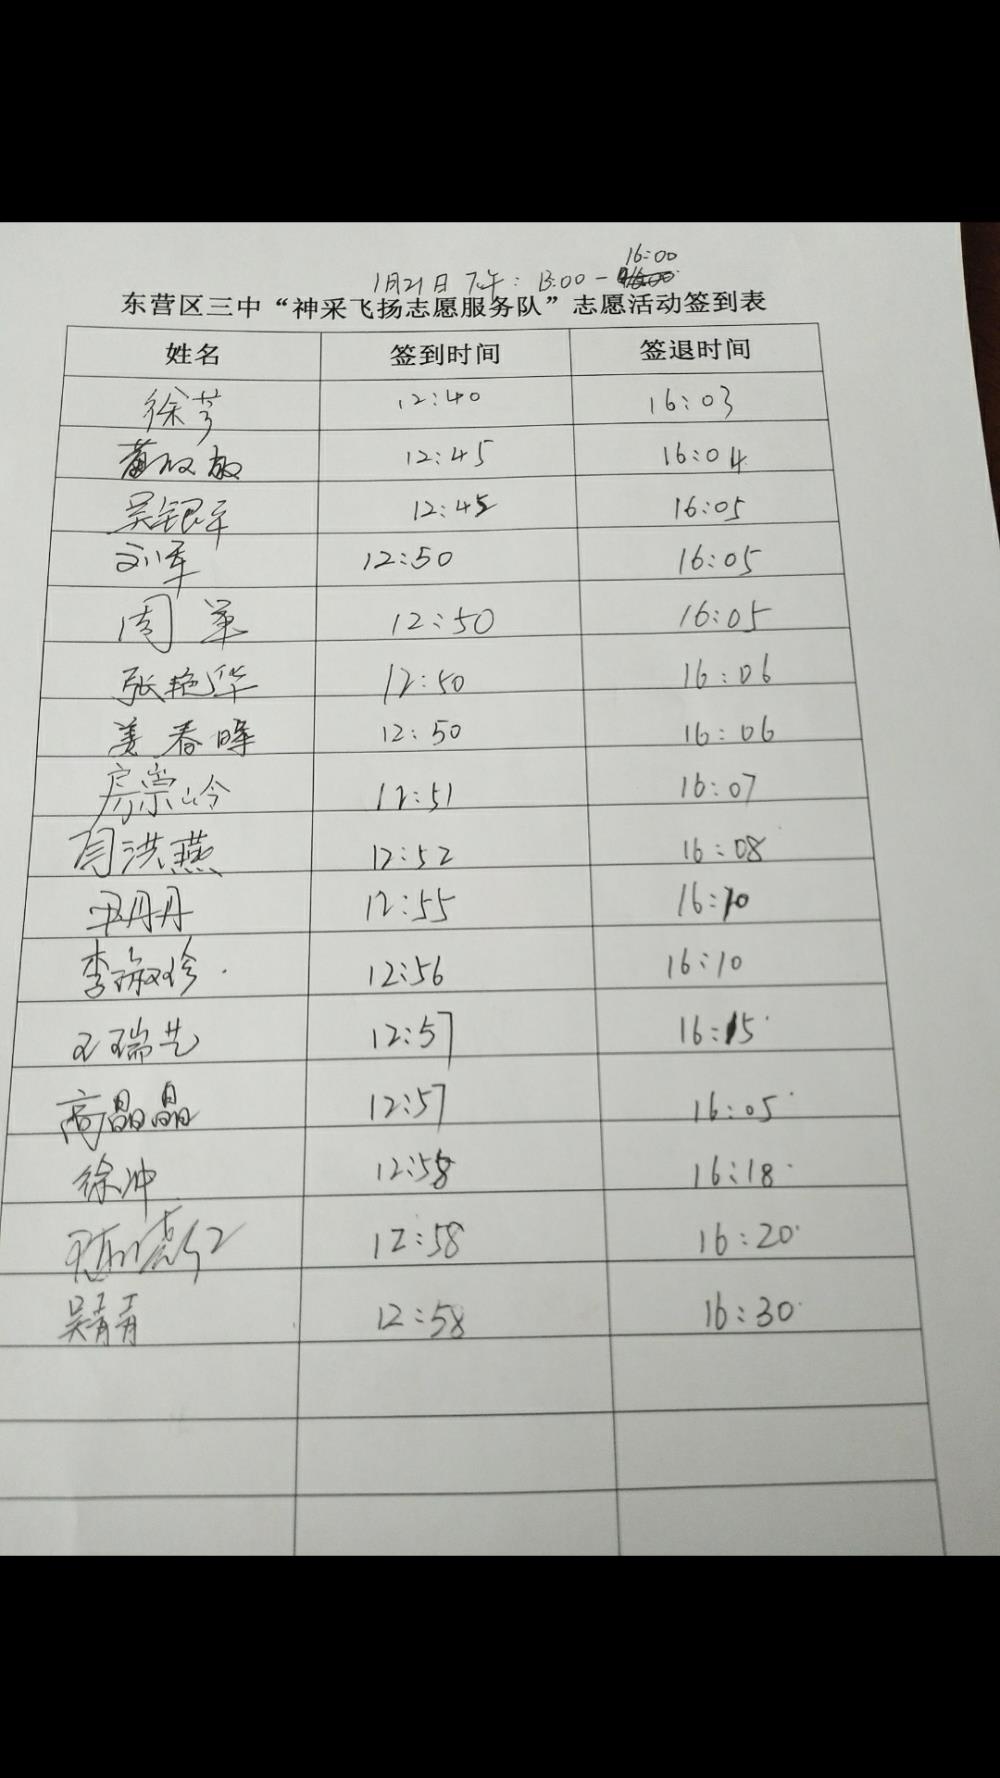 16:00
1月21日 下午: 13:00-
东营区三中“神采飞扬志愿服务队”志愿活动签到表
姓名 签到时间 签退时间
徐芳 12:40 16:03
黄 敏 12:45 16:04
吴银平 12:45 16:05
刘军 12:50 16:05
周 军 12:50 16:05
张艳华 12:50 16:06
姜春晖 12:50 16:06
房崇岭 12:51 16:07
闫洪燕 12:52 16:08
尹丹丹 12:55 16:10
李淑珍 12:56 16:10
王瑞芝 12:57 16:15
高晶晶 12:57 16:05
徐冲 12:58 16:18
12:58 16:20
吴青青 12:58 16:30